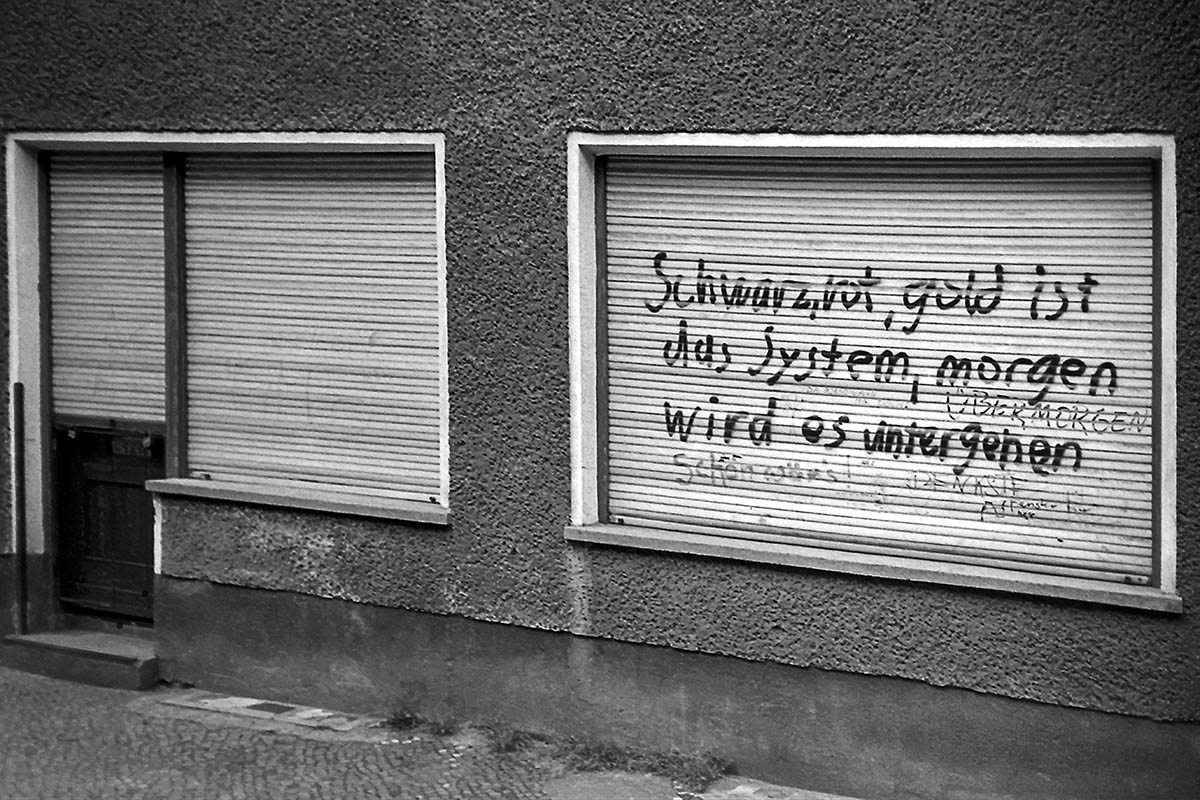 Schwarz,rot,gold ist
das System, morgen
ÜBERMORGEN
wird es untergehen
Schön wärs!